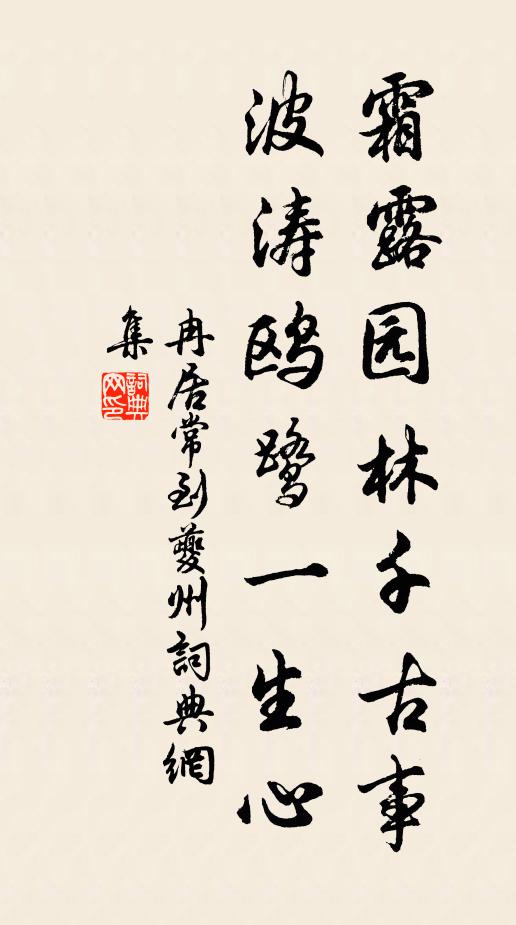 霜露园林千古事
波涛鸥鹭一生心
冉居常到夔州詞典網
集
詞典网印